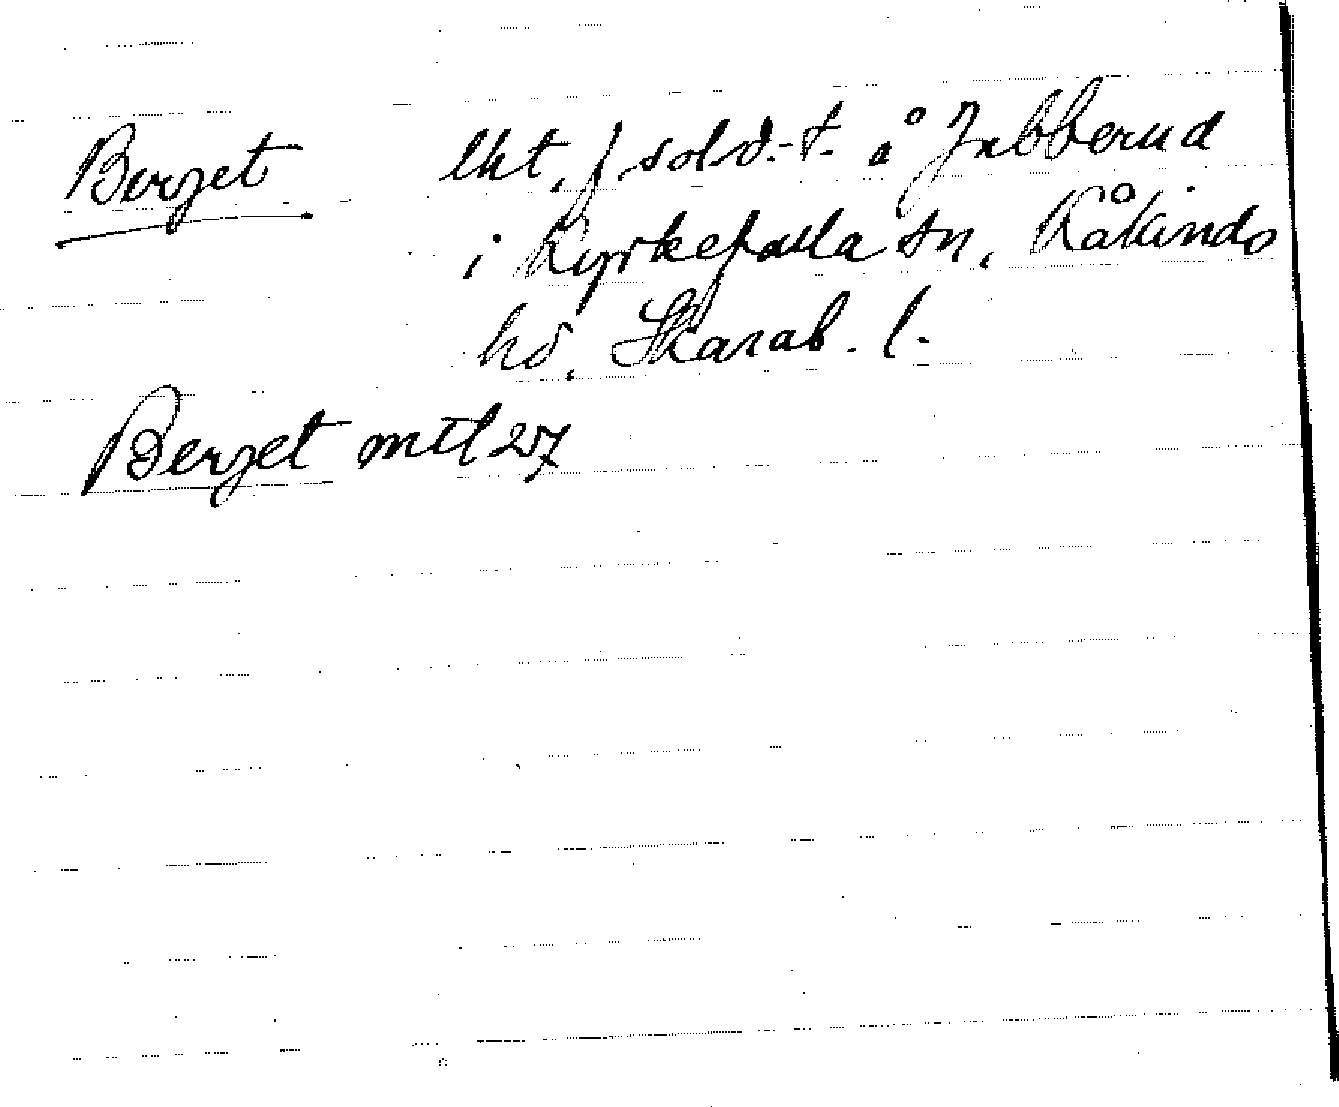 Berget lht, f sold.-t. å Jabberud
i Kyrkefalla sn, Kåkinds
hd. Skarab. l.
Berget mtl 257